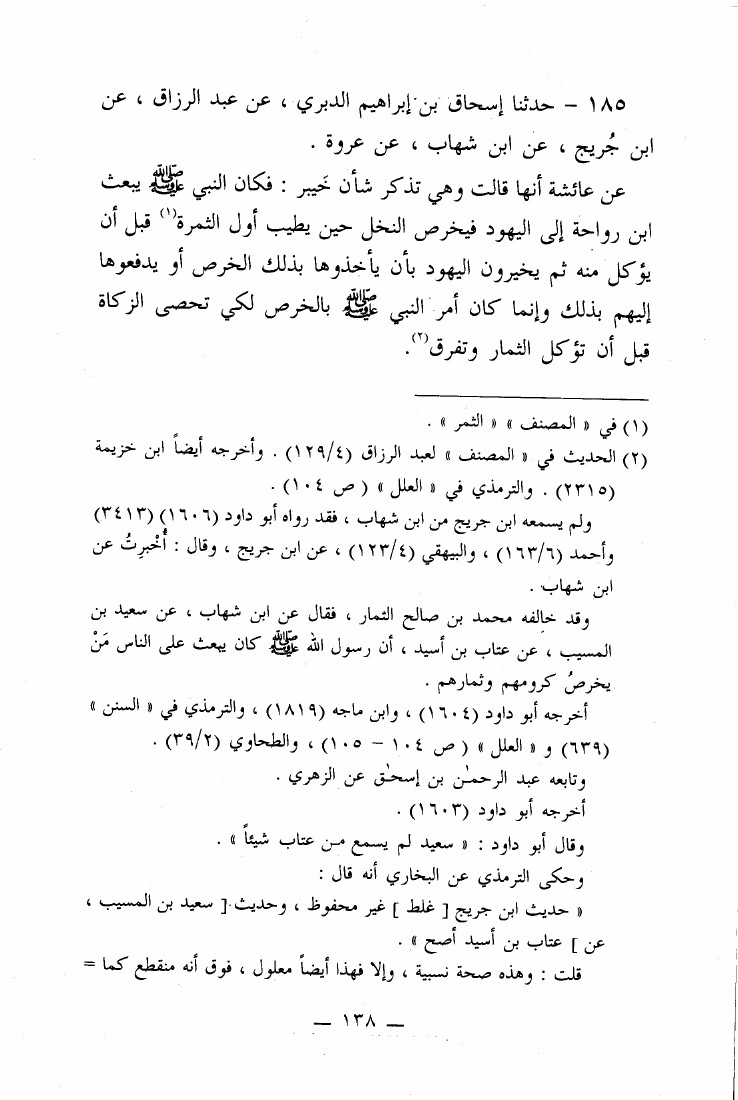 ١٨٥ – حدثنا إسحاق بن إبراهيم الدبري ، عن عبد الرزاق ، عن
ابن جُريج ، عن ابن شهاب ، عن عروة .
عن عائشة أنها قالت وهي تذكر شأن خَيبر : فكان النبي ﷺ يبعث
ابن رواحة إلى اليهود فيخرص النخل حين يطيب أول الثمرة(١) قبل أن
يؤكل منه ثم يخيرون اليهود بأن يأخذوها بذلك الخرص أو يدفعوها
إليهم بذلك وإنما كان أمر النبي ﷺ بالخرص لكي تحصى الزكاة
قبل أن تؤكل الثمار وتفرق(٢).
(١) في « المصنف » « الثمر » .
(٢) الحديث في « المصنف » لعبد الرزاق (١٢٩/٤) . وأخرجه أيضاً ابن خزيمة
(٢٣١٥) . والترمذي في « العلل » ( ص ١٠٤) .
ولم يسمعه ابن جريج من ابن شهاب ، فقد رواه أبو داود (١٦٠٦) (٣٤١٣)
وأحمد (١٦٣/٦) ، والبيهقي (١٢٣/٤) ، عن ابن جريج ، وقال : أُخْبرتُ عن
ابن شهاب .
وقد خالفه محمد بن صالح الثمار ، فقال عن ابن شهاب ، عن سعيد بن
المسيب ، عن عتاب بن أسيد ، أن رسول الله ﷺ كان يبعث على الناس مَنْ
يخرصُ كرومهم وثمارهم .
أخرجه أبو داود (١٦٠٤) ، وابن ماجه (١٨١٩) ، والترمذي في « السنن »
(٦٣٩) و « العلل » ( ص ١٠٤ – ١٠٥) ، والطحاوي (٣٩/٢) .
وتابعه عبد الرحمٰن بن إسحٰق عن الزهري .
أخرجه أبو داود (١٦٠٣) .
وقال أبو داود : « سعيد لم يسمع من عتاب شيئاً » .
وحكى الترمذي عن البخاري أنه قال :
« حديث ابن جريج [ غلط ] غير محفوظ ، وحديث [ سعيد بن المسيب ،
عن ] عتاب بن أسيد أصح » .
قلت : وهذه صحة نسبية ، وإلا فهذا أيضاً معلول ، فوق أنه منقطع كما =
— ١٣٨ —